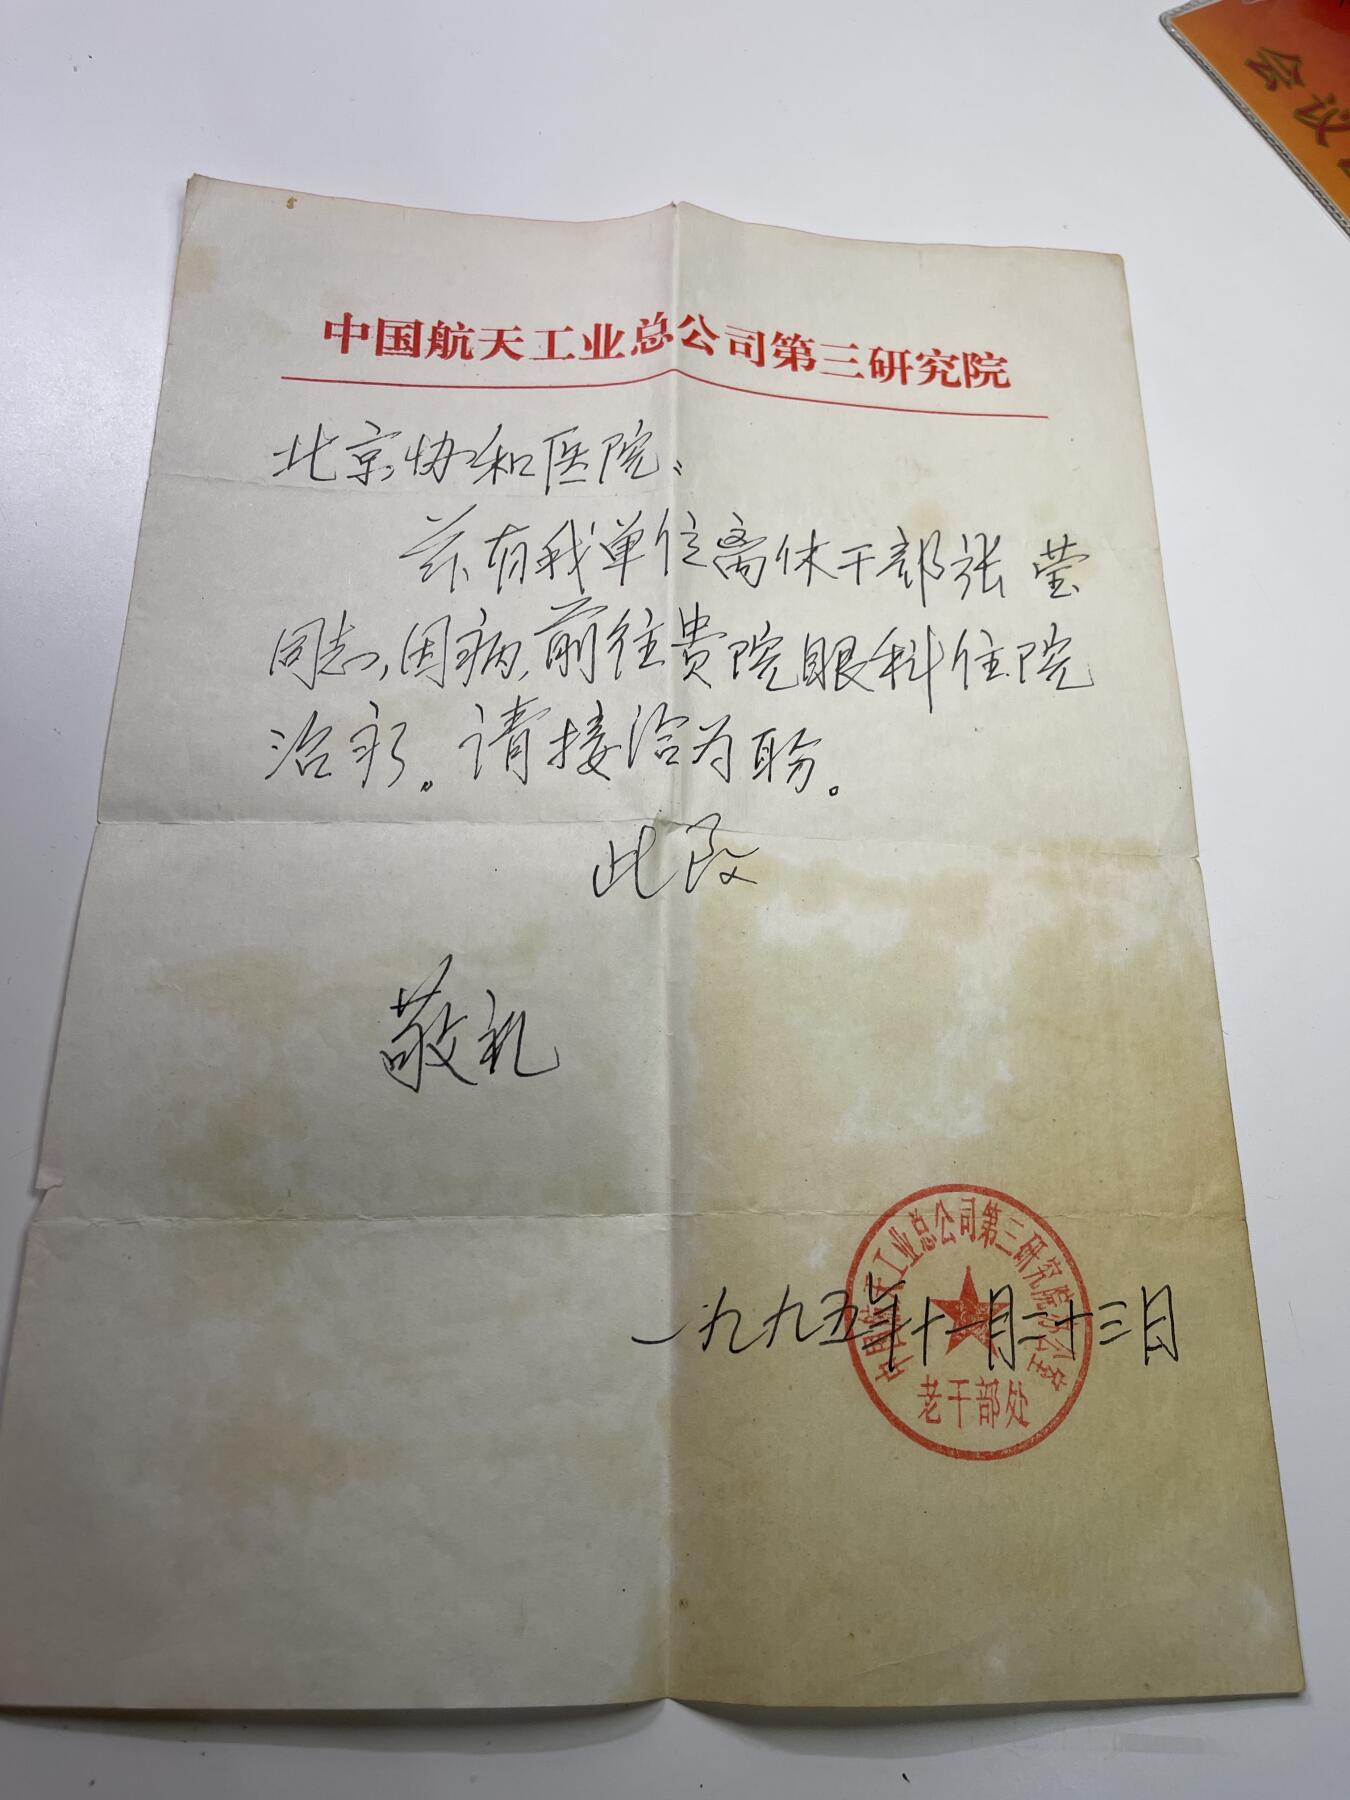 会议
中国航天工业总公司第三研究院
北京协和医院:
兹有我单位离休干部张莹
同志,因病,前往贵院眼科住院
治疗。请接洽为盼。
此致
敬礼
一九九五年十一月二十三日
中国航天工业总公司第三研究院办公室
老干部处